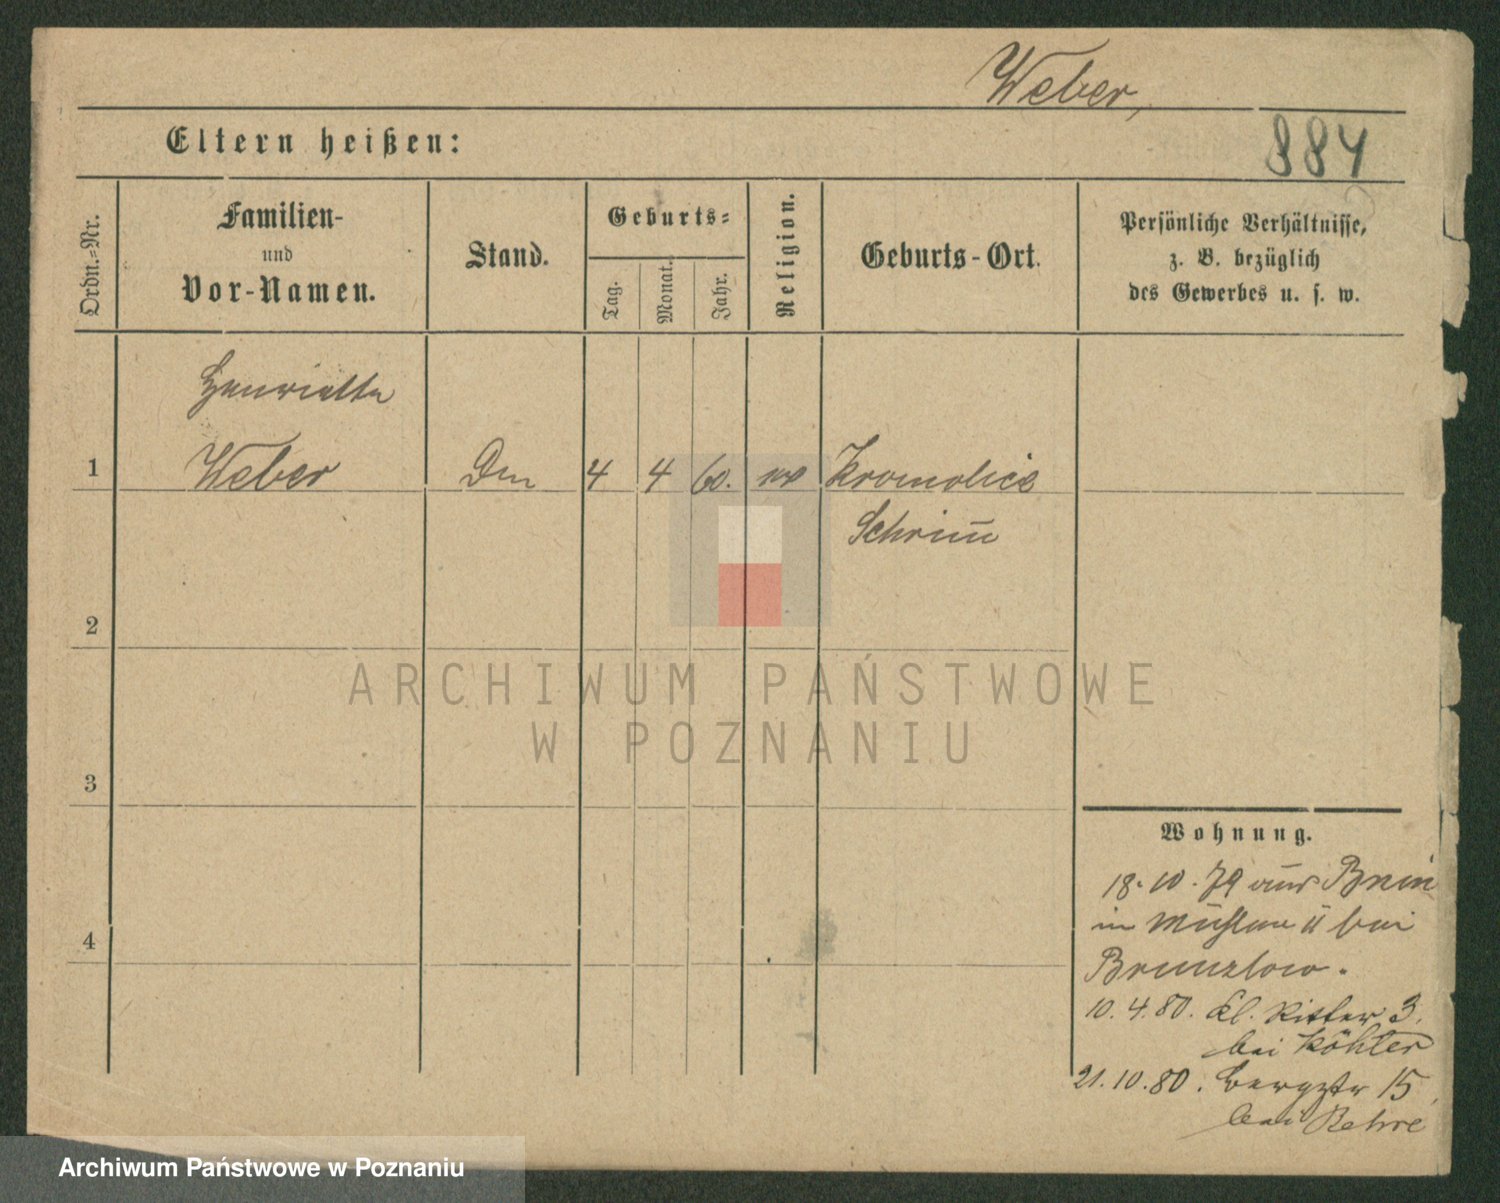 Weber,
Eltern heißen:
884
Ordn.-Nr.
Familien-
und
Vor-Namen.
Stand.
Geburts-
Tag.
Monat.
Jahr.
Religion.
Geburts-Ort.
Persönliche Verhältnisse,
z. B. bezüglich
des Gewerbes u. s. w.
Henriette
1 Weber 4 4 60. Kromolice
Schrim̅
2
3
4
Wohnung.
18.10.79 aus Bnin
in bei
10.4.80. Kl. Ritter 3.
bei Köhler
21.10.80. Bergstr 15,
bei
ARCHIWUM PAŃSTWOWE
W POZNANIU
Archiwum Państwowe w Poznaniu